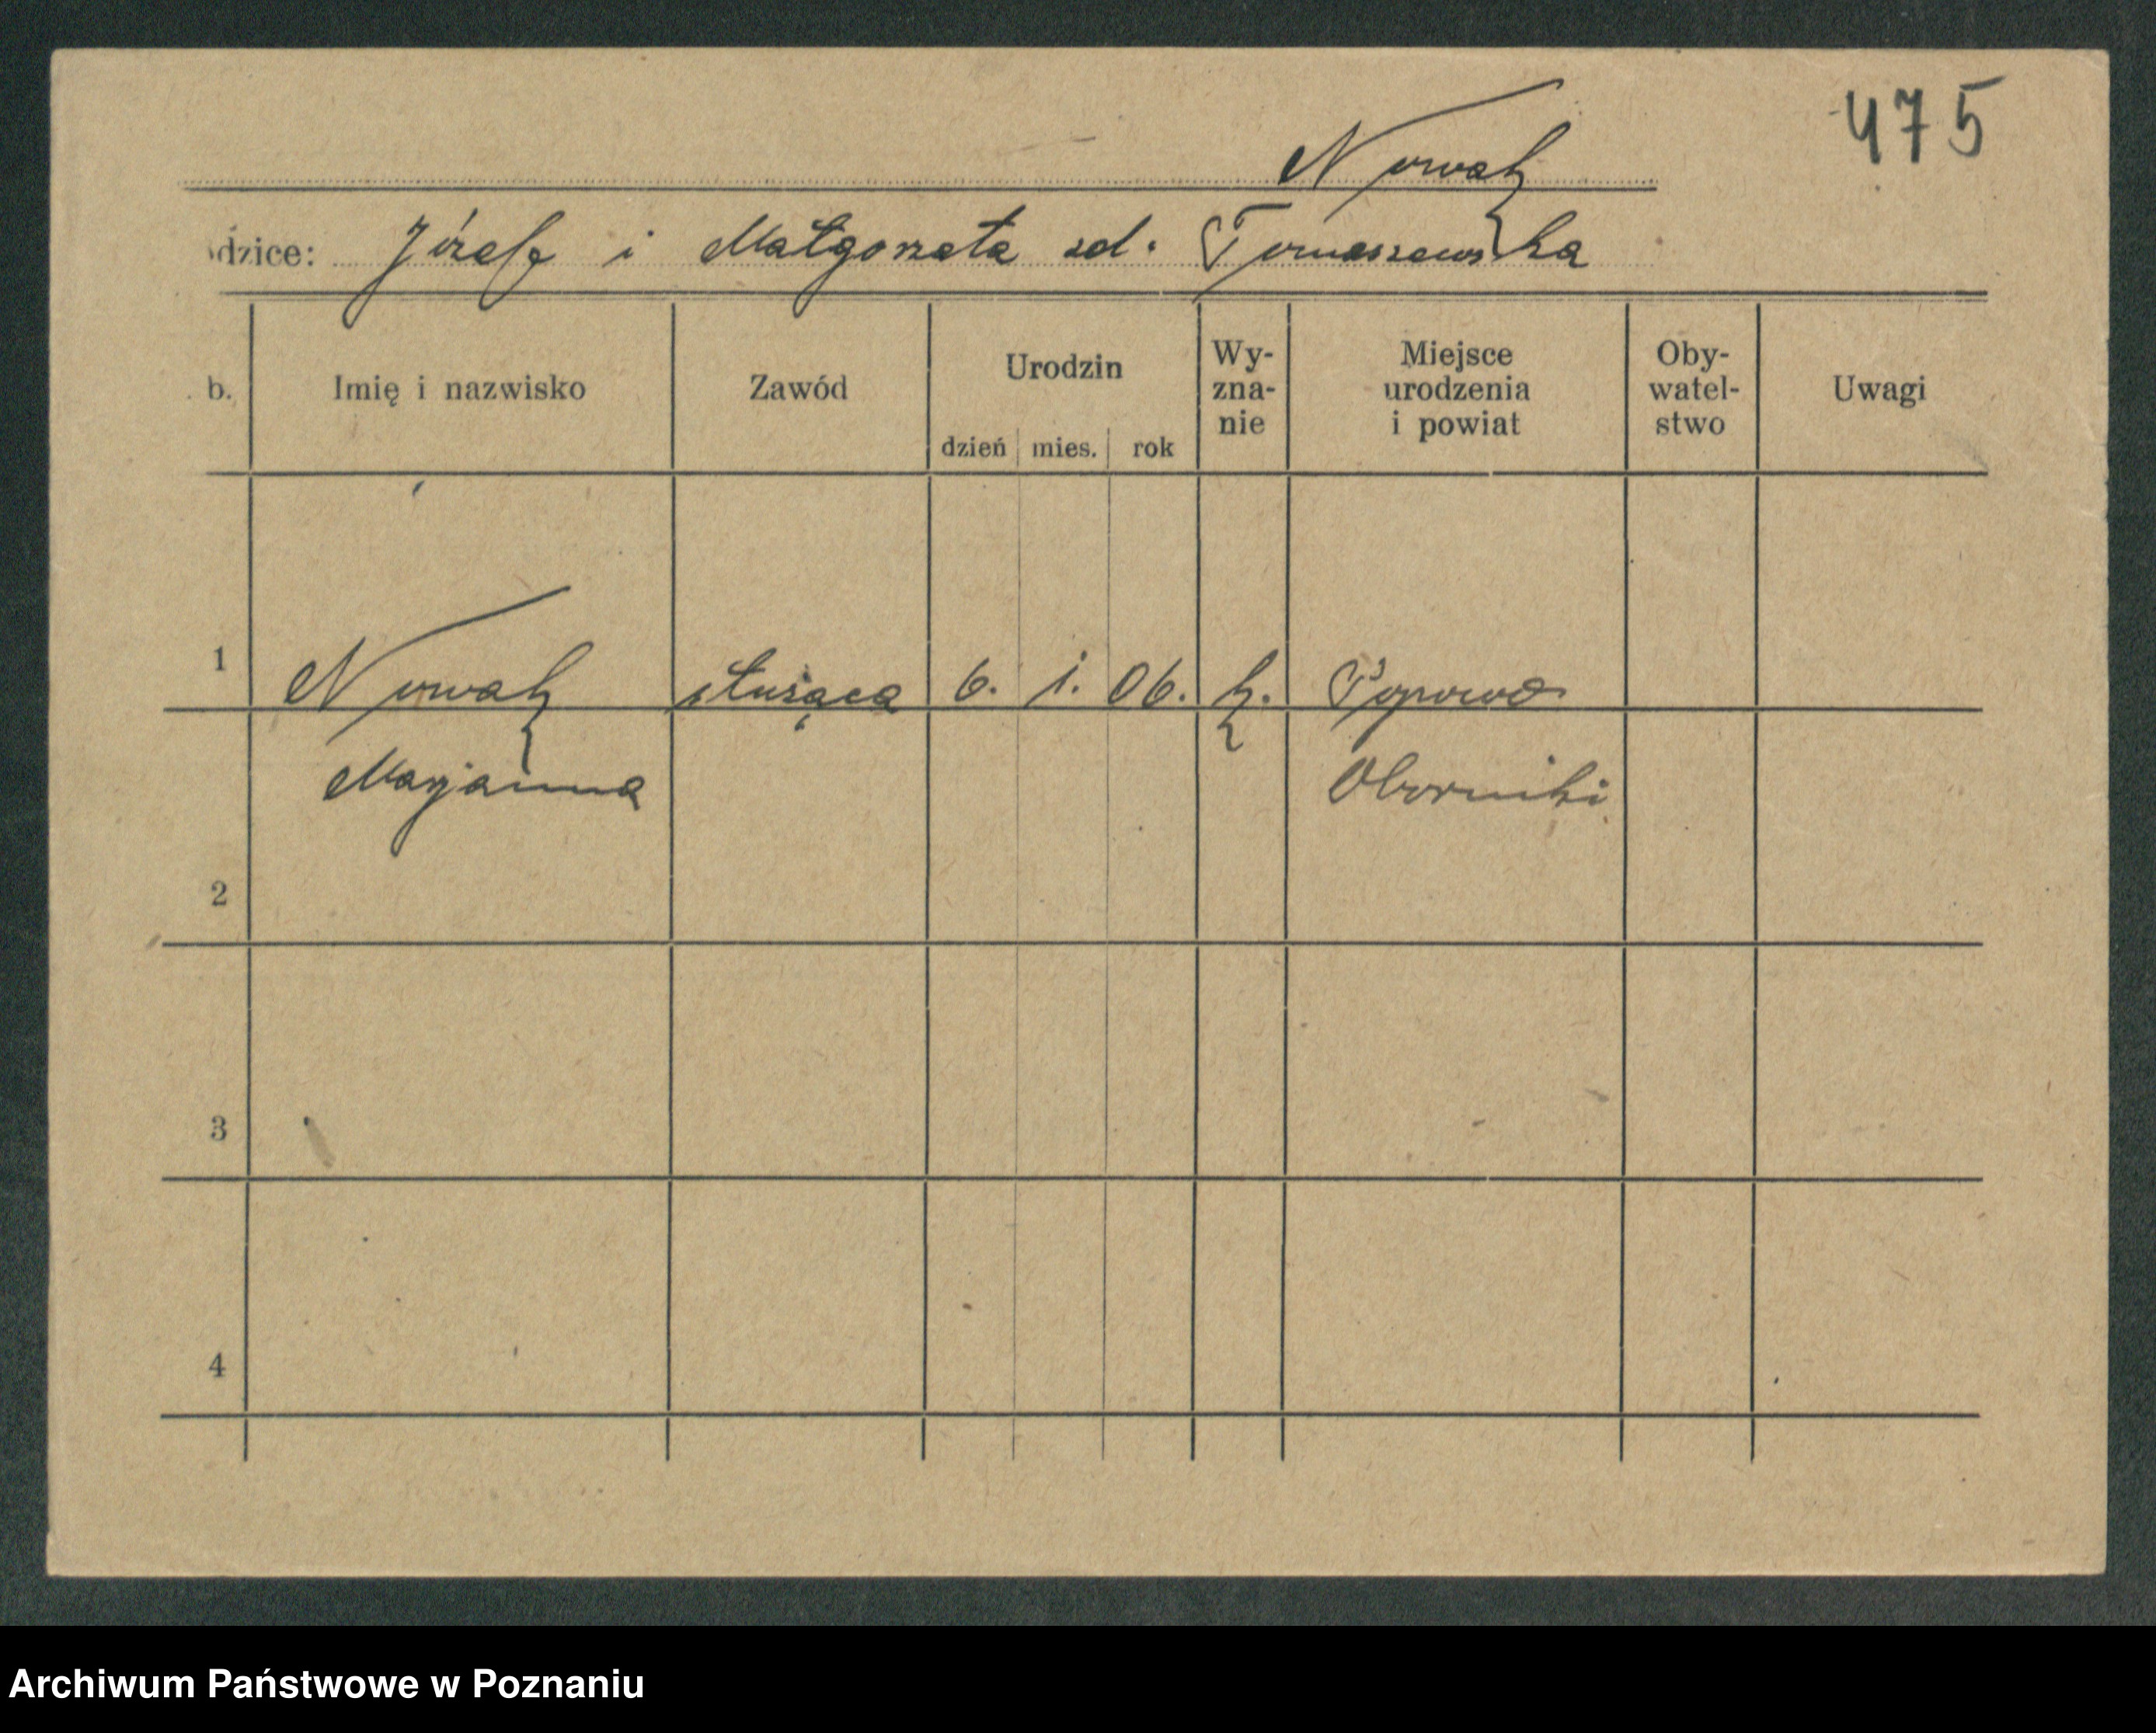 475
Nowak
dzice: Józef i Małgorzata zd. Tomaszewska
b. Imię i nazwisko Zawód Urodzin dzień mies. rok Wy- zna- nie Miejsce urodzenia i powiat Oby- watel- stwo Uwagi
1 Nowak służąca 6. 1. 06. k. Popowo
Marjanna Oborniki
2
3
4
Archiwum Państwowe w Poznaniu